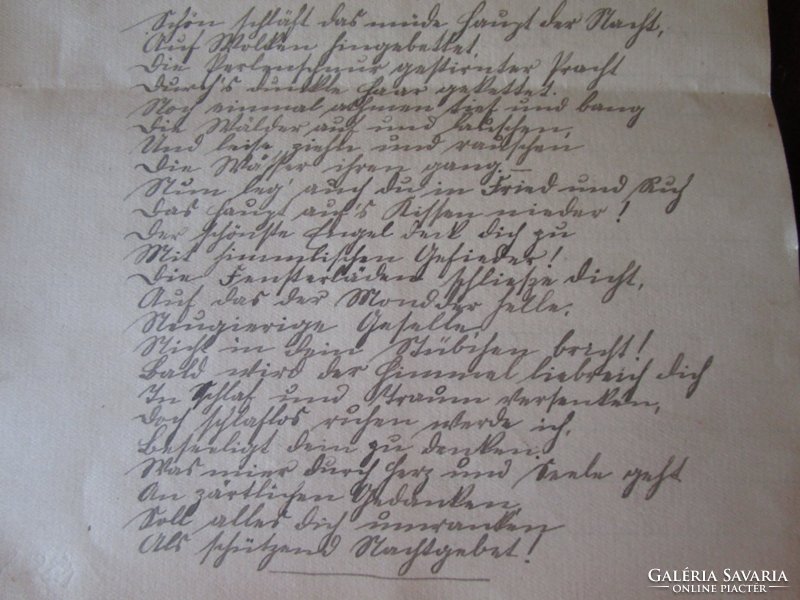 Schön schläft das müde Haupt der Nacht,
Auf Wolken hingebettet
Die Perlenschnur gestirnter Pracht
Durch's dunkle Haar gekettet.
Noch einmal athmen tief und bang
Die Wälder auf und lauschen,
Und leise ziehn und rauschen
Die Wässer ihren gang. –
Nun leg' auch du in Fried und Ruh
Das Haupt auf's Kissen nieder!
Der schönste Engel deck dich zu
Mit himmlischen Gefieder!
Die Fensterläden schliesse dicht,
Auf das der Mond der helle,
Neugierige Geselle
Nicht in dein Stübchen bricht!
Bald wird der Himmel liebreich dich
In Schlaf und Traum versenken,
Doch schlaflos ruhen werde ich,
Beseeligt dein zu denken.
Was mier durch Herz und Seele geht
An zärtlichen Gedanken,
Soll alles dich umranken
Als schützend Nachtgebet!
GALÉRIA SAVARIA
ONLINE PIACTÉR